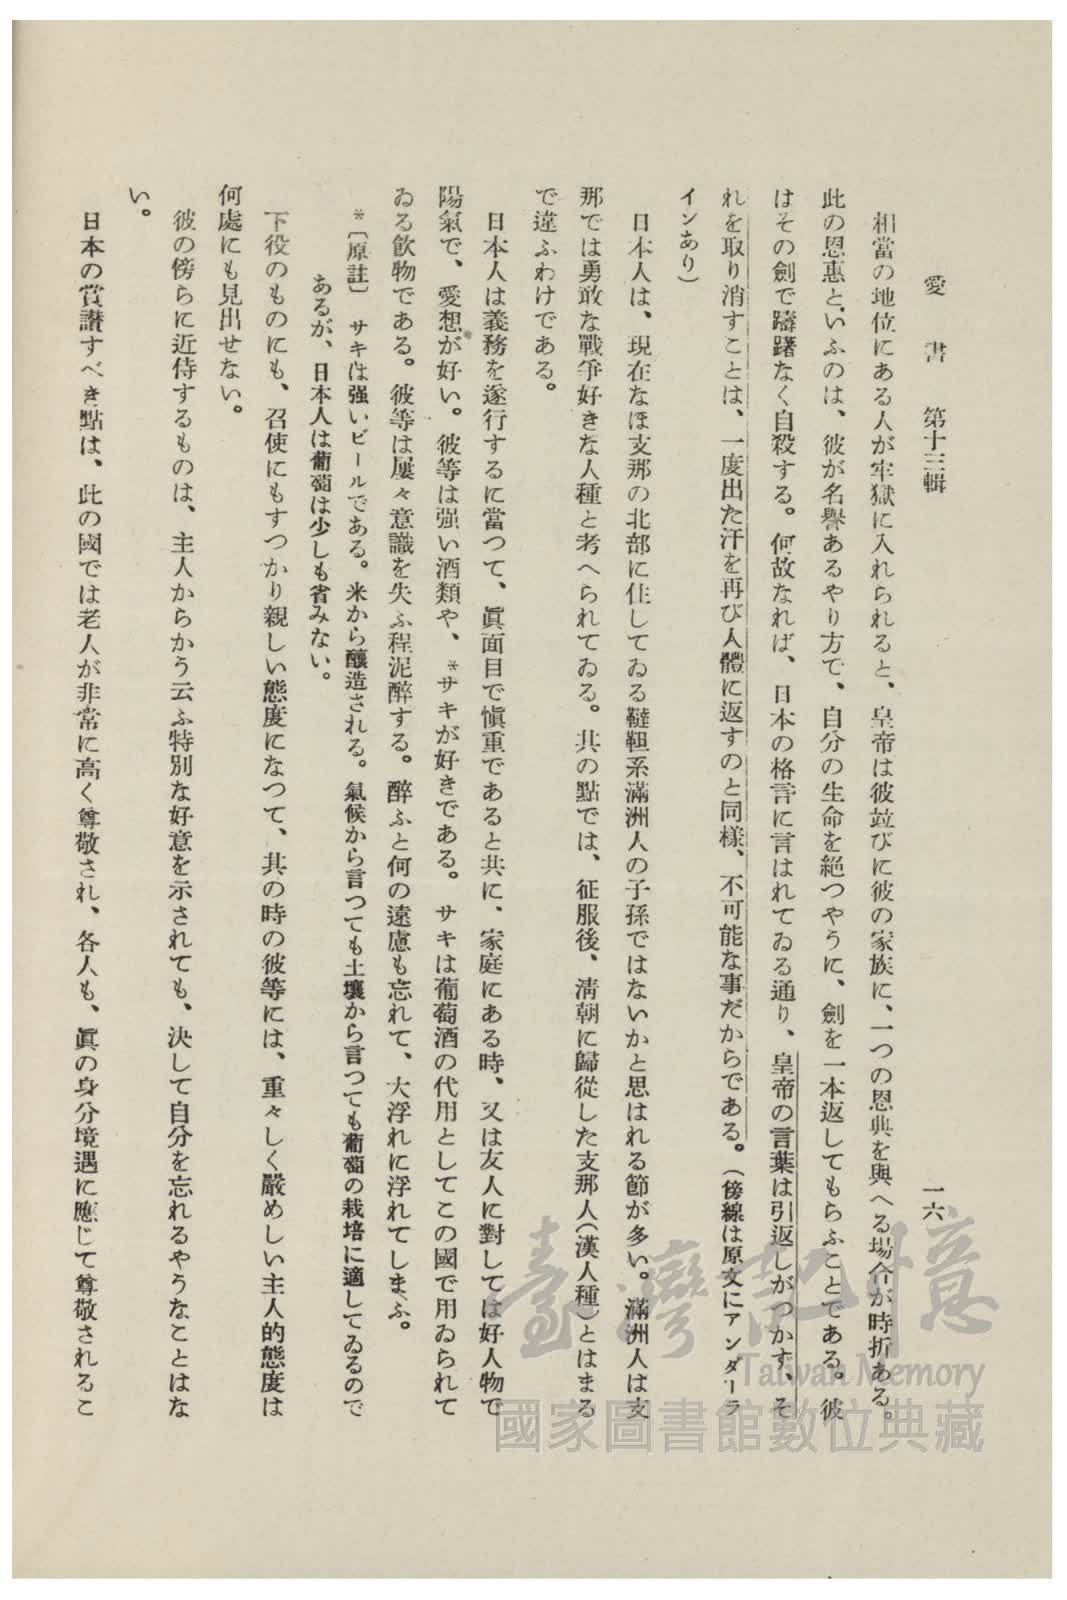 愛書 第十三輯 一六
相當の地位にある人が牢獄に入れられると、皇帝は彼竝びに彼の家族に、一つの恩典を與へる場合が時折ある。
此の恩惠といふのは、彼が名譽あるやり方で、自分の生命を絶つやうに、劍を一本返してもらふことである。彼
はその劍で躊躇なく自殺する。何故なれば、日本の格言に言はれてゐる通り、皇帝の言葉は引返しがつかず、そ
れを取り消すことは、一度出た汗を再び人體に返すのと同樣、不可能な事だからである。(傍線は原文にアンダーラ
インあり)
日本人は、現在なほ支那の北部に住してゐる韃靼系滿洲人の子孫ではないかと思はれる節が多い。滿洲人は支
那では勇敢な戰爭好きな人種と考へられてゐる。其の點では、征服後、淸朝に歸從した支那人(漢人種)とはまる
で違ふわけである。
日本人は義務を遂行するに當つて、眞面目で愼重であると共に、家庭にある時、又は友人に對しては好人物で
陽氣で、愛想が好い。彼等は强い酒類や、*サキが好きである。サキは葡萄酒の代用としてこの國で用ゐられて
ゐる飮物である。彼等は屢々意識を失ふ程泥醉する。醉ふと何の遠慮も忘れて、大浮れに浮れてしまふ。
*〔原註〕 サキは强いビールである。米から釀造される。氣候から言つても土壤から言つても葡萄の栽培に適してゐるので
あるが、日本人は葡萄は少しも省みない。
下役のものにも、召使にもすつかり親しい態度になつて、其の時の彼等には、重々しく嚴めしい主人的態度は
何處にも見出せない。
彼の傍らに近侍するものは、主人からかう云ふ特別な好意を示されても、決して自分を忘れるやうなことはな
い。
日本の賞讃すべき點は、此の國では老人が非常に高く尊敬され、各人も、眞の身分境遇に應じて尊敬されるこ
臺灣記憶
Taiwan Memory
國家圖書館數位典藏